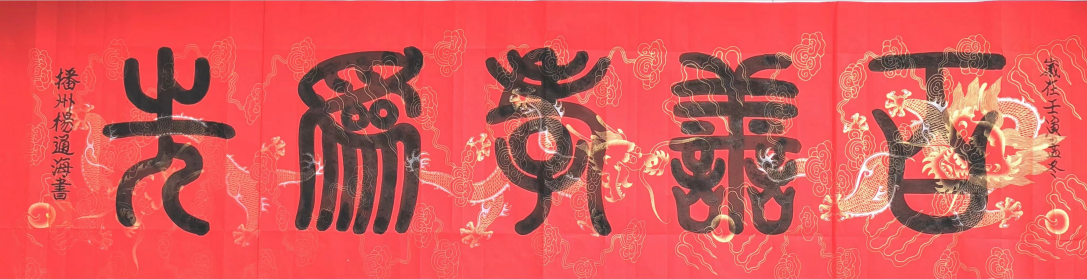 歲在壬寅孟冬
百善孝爲先
播州楊通海書